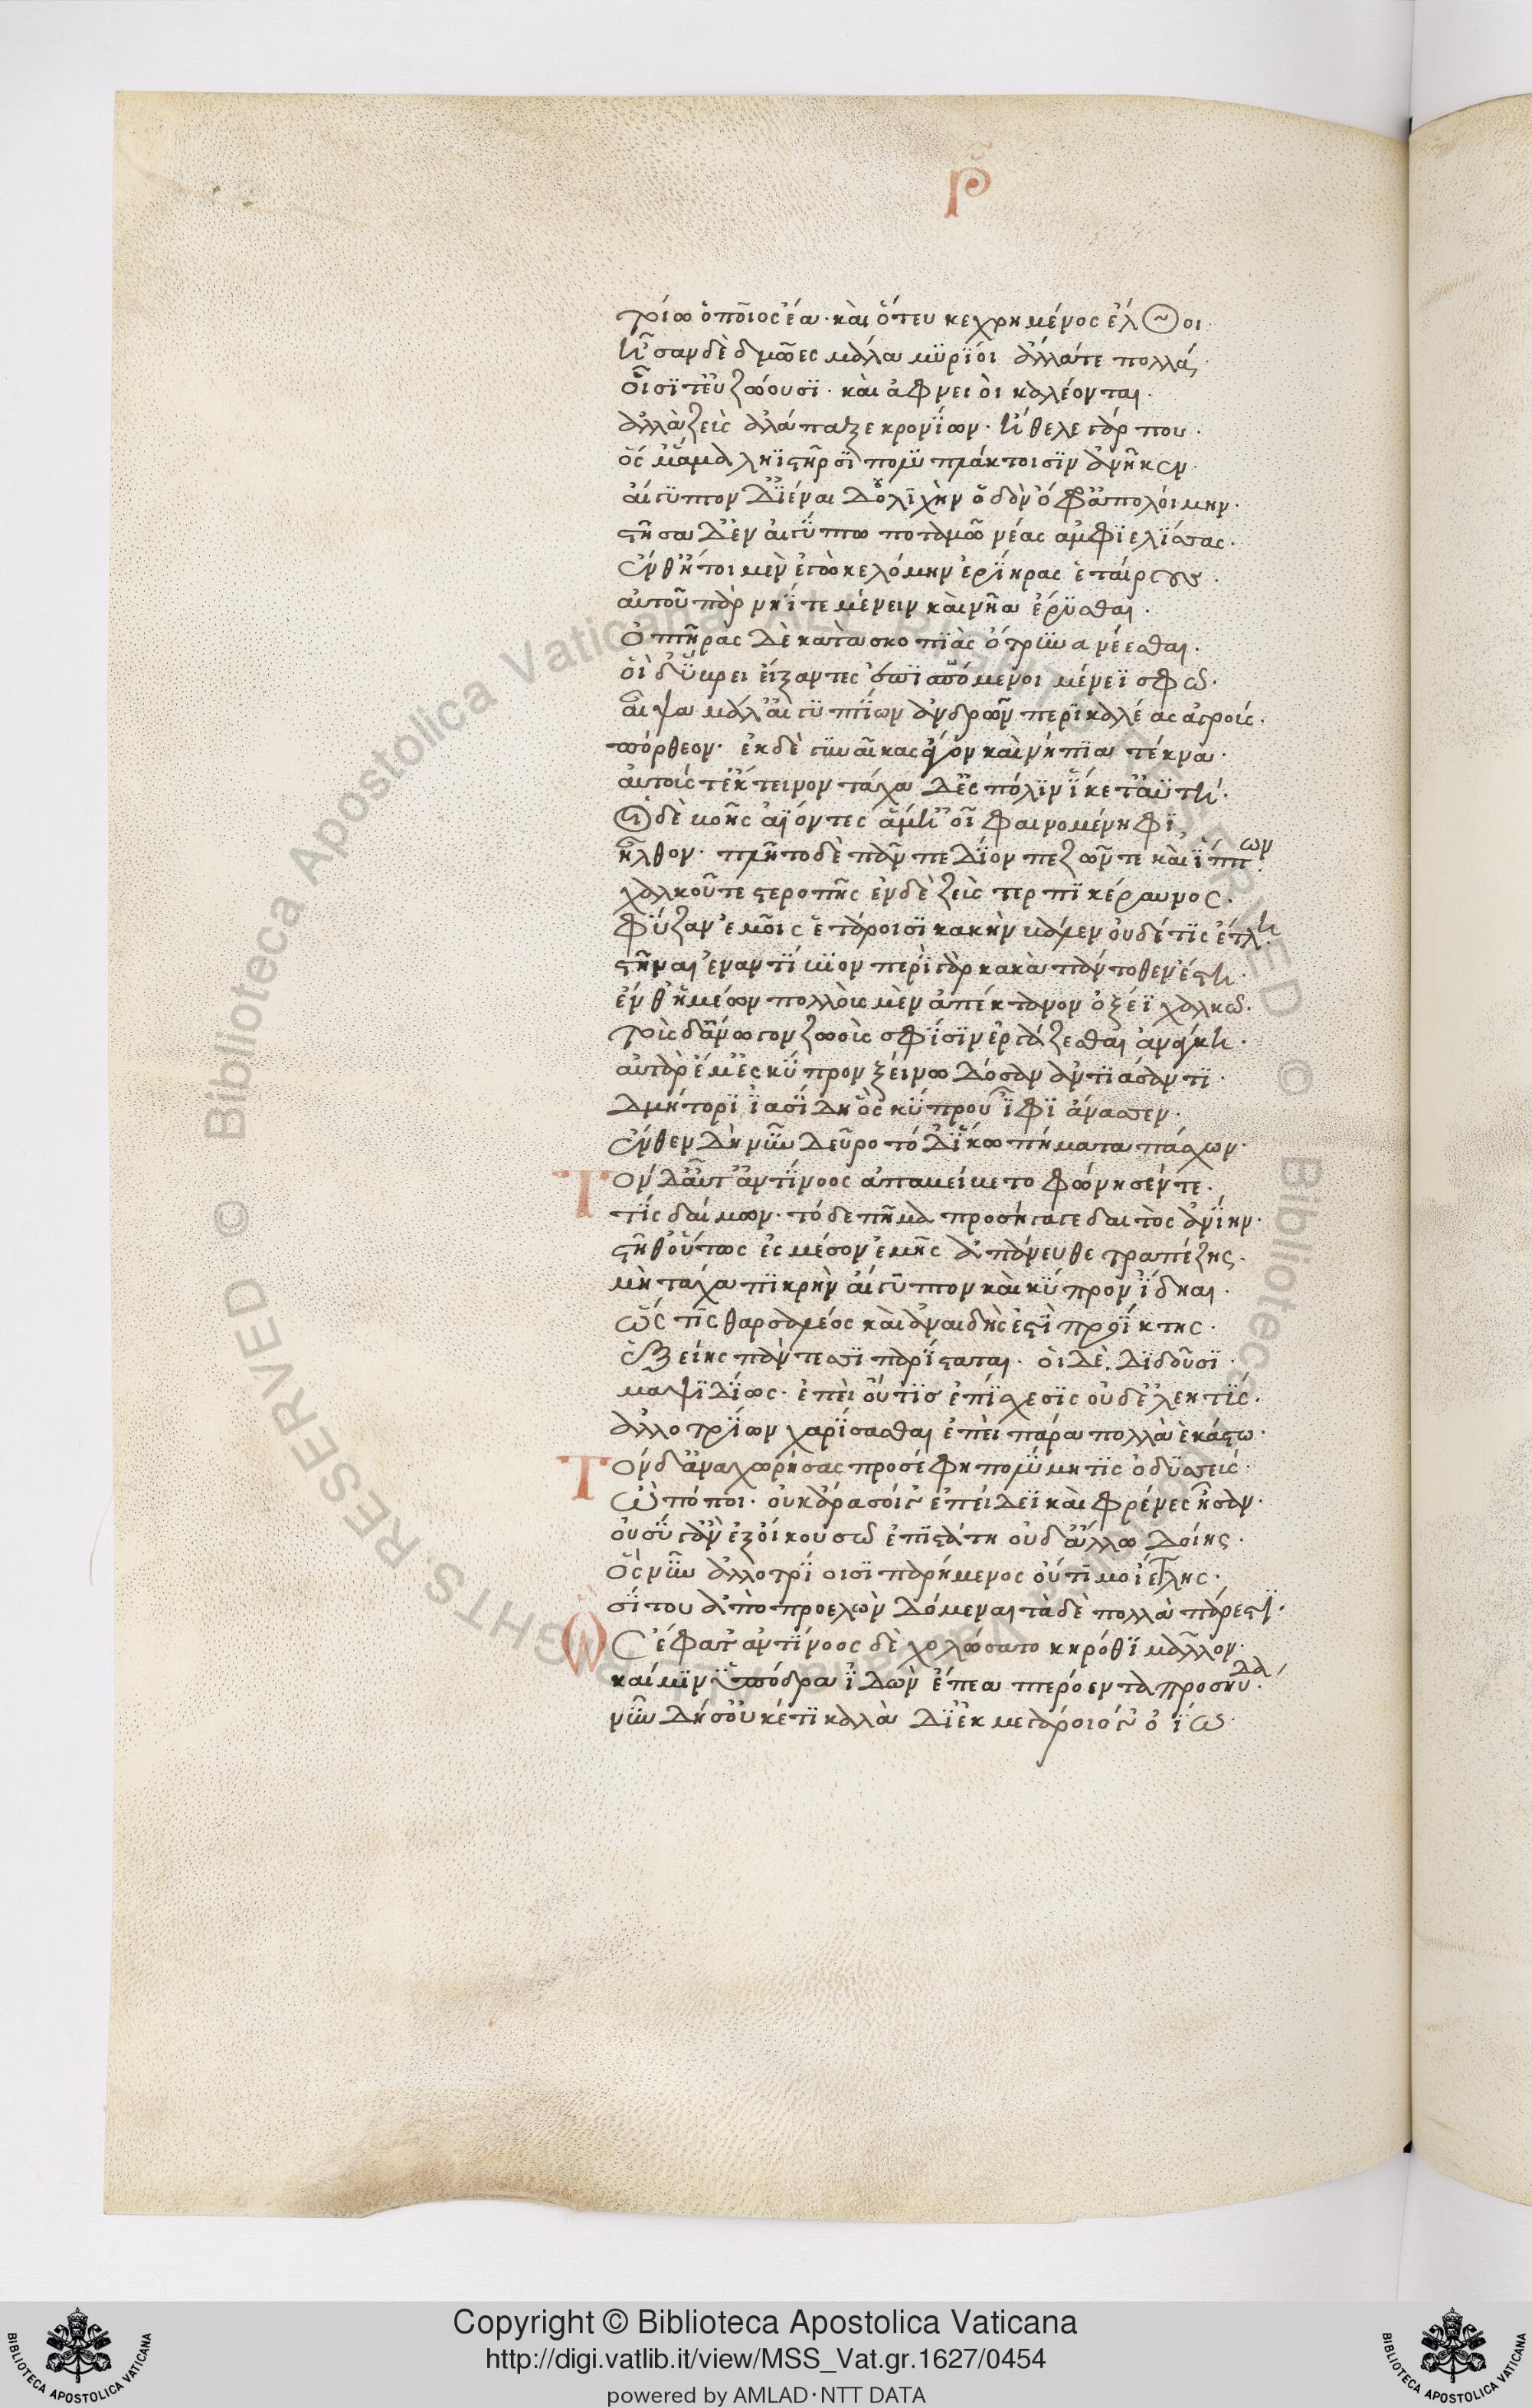 ρ̃
τοίω ὁποῖος ἔω· καὶ ὅτευ κεχρημένος ἔλθοι·
ἦσαν δὲ δμῶες μάλα μυρίοι ἄλλά τε πολλά,
οἷσί τ' εὖ ζώουσι· καὶ ἀφνειοὶ καλέονται·
ἀλλὰ ζεὺς ἀλάπαξε κρονίων· ἤθελε γάρ που·
ὅς μ' ἅμα ληιστῆρσι πολυπλάγκτοισιν ἀνῆκεν·
αἴγυπτον δ' ἰέναι δολιχὴν ὁδὸν ὄφρ' ἀπολοίμην·
στῆσα δ' ἐν αἰγύπτω ποταμῶ νέας ἀμφιελίσσας·
ἔνθ' ἤτοι μὲν ἐγὼ κελόμην ἐρίηρας ἑταίρους·
αὐτοῦ πὰρ νήϊ τε μένειν καὶ νῆα ἔρυσθαι·
ὀπτῆρας δὲ κατὰ σκοπιὰς ὄτρυνα νέεσθαι·
οἱ δ' ὕβρει εἴξαντες ἐπισπόμενοι μένεϊ σφῶ·
αἶψα μάλ' αἰγυπτίων ἀνδρῶν περικαλλέας ἀγρούς·
πόρθεον· ἐκ δὲ γυναῖκας ἄγον καὶ νήπια τέκνα·
αὐτούς τ' ἔκτεινον τάχα δ' ἐς πόλιν ἵκετ' ἀϋτή·
οἱ δὲ βοῆς ἀΐοντες ἅμ' ἠοῖ φαινομένηφι
ἦλθον· πλῆτο δὲ πᾶν πεδίον πεζῶν τε καὶ ἵππων·
χαλκοῦ τε στεροπῆς ἐν δὲ ζεὺς τερπικέραυνος·
φύζαν ἐμοῖς ἑτάροισι κακὴν βάλεν οὐδέ τις ἔτλη·
στῆναι ἐναντίβιον περὶ γὰρ κακὰ πάντοθεν ἔστη·
ἔνθ' ἡμέων πολλοὺς μὲν ἀπέκτανον ὀξέϊ χαλκῶ·
τοὺς δ' ἄναγον ζωοὺς σφίσιν ἐργάζεσθαι ἀνάγκη·
αὐτὰρ ἔμ' ἐς κύπρον ξείνω δόσαν ἀντιάσαντι·
δμήτορι ἰασίδη ὃς κύπρου ἶφι ἄνασσεν·
ἔνθεν δὴ νῦν δεῦρο τόδ' ἵκω πήματα πάσχων·
Τὸν δ' αὖτ' ἀντίνοος ἀπαμείβετο φώνησέν τε·
τίς δαίμων· τόδε πῆμα προσήγαγε δαιτὸς ἀνίην·
στῆθ' οὕτως ἐς μέσον ἐμῆς ἀπάνευθε τραπέζης·
μὴ τάχα πικρὴν αἴγυπτον καὶ κύπρον ἴδηαι·
ὥς τις θαρσαλέος καὶ ἀναιδής ἐστι προΐκτης·
ἑξείης πάντεσσι παρίστασαι· οἱ δὲ διδοῦσι·
μαψιδίως· ἐπεὶ οὔτις ἐπίσχεσις οὐδ' ἐλεητύς·
ἀλλοτρίων χαρίσασθαι ἐπεὶ πάρα πολλὰ ἑκάστω·
Τὸν δ' ἀναχωρήσας προσέφη πολύμητις ὀδυσσεύς·
ὢ πόποι· οὐκ ἄρα σοίγ' ἐπὶ εἴδεϊ καὶ φρένες ἦσαν·
οὐ σύγ' ἂν ἐξ οἴκου σῶ ἐπιστάτη οὐδ' ἅλα δοίης·
ὃς νῦν ἀλλοτρίοισι παρήμενος οὔτι μοι ἔτλης·
σίτου ἀποπροελὼν δόμεναι τὰ δὲ πολλὰ πάρεστι·
Ὣς ἔφατ' ἀντίνοος δὲ χολώσατο κηρόθι μᾶλλον·
καί μιν ὑπόδρα ἰδὼν ἔπεα πτερόεντα προσηύδα·
νῦν δή σ' οὐκέτι καλὰ διὲκ μεγάροιό γ' ὀΐω·
Copyright © Biblioteca Apostolica Vaticana
http://digi.vatlib.it/view/MSS_Vat.gr.1627/0454
powered by AMLAD·NTT DATA